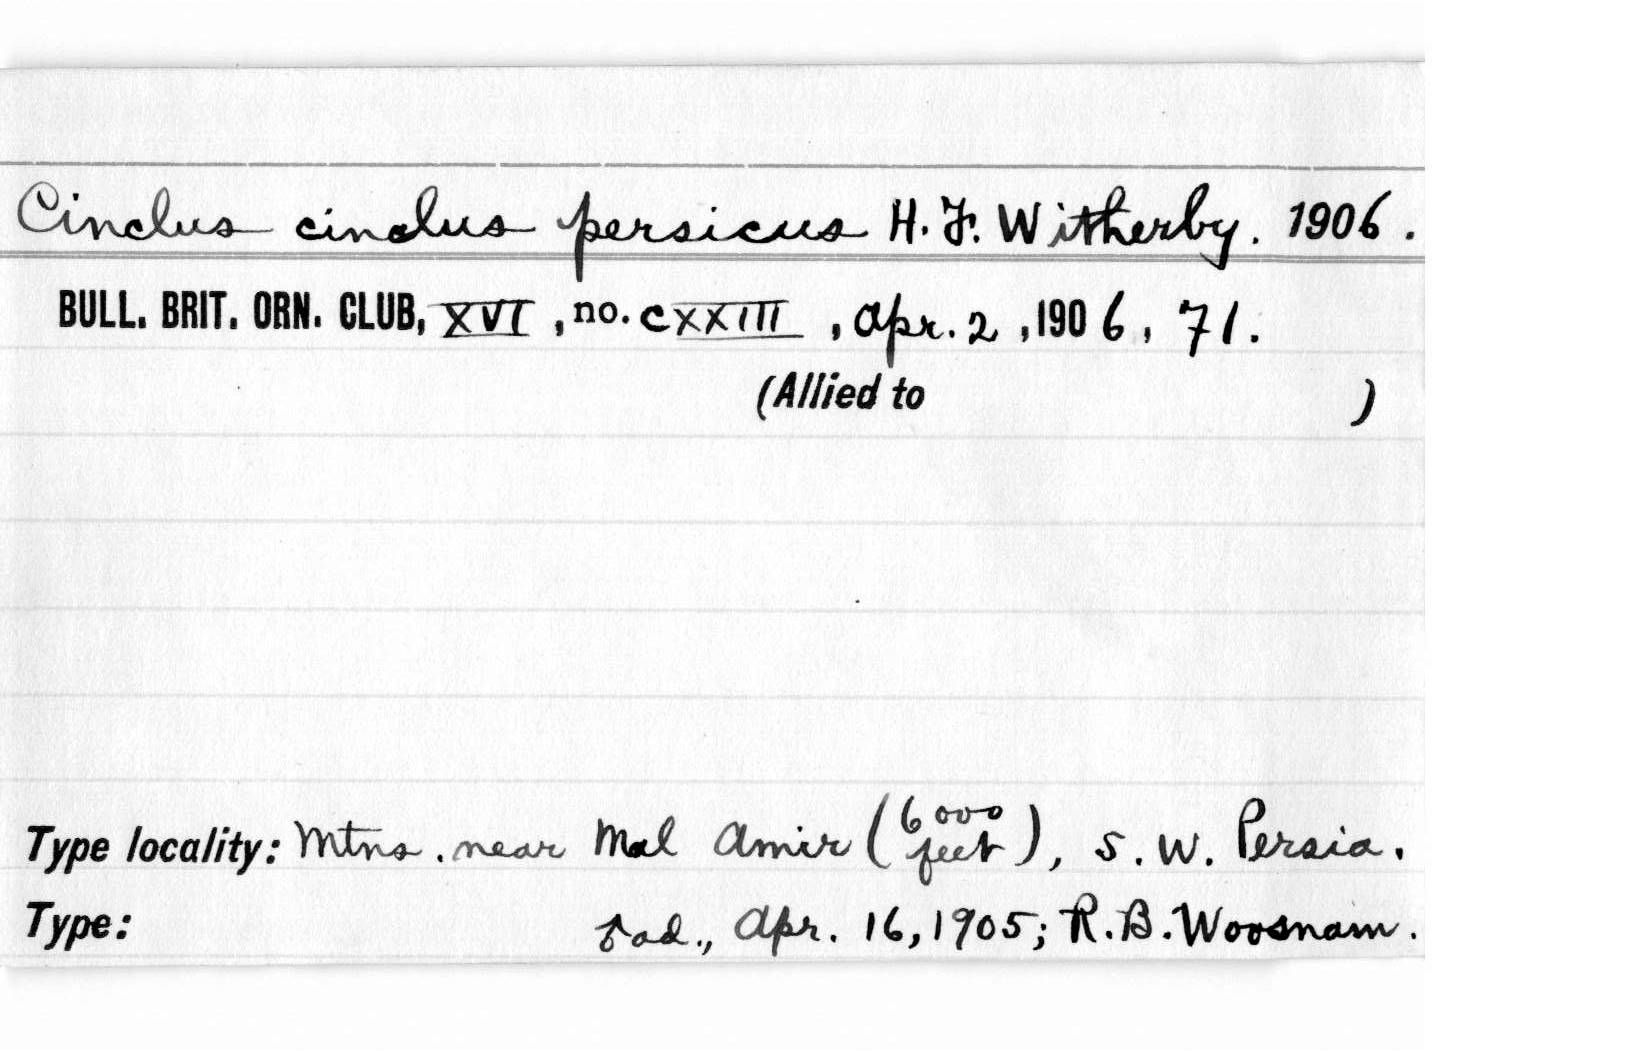 Cinclus cinclus persicus H. F. Witherby. 1906.
BULL. BRIT. ORN. CLUB, XVI, no. CXXIII, Apr. 2, 1906, 71.
(Allied to )
Type locality: Mtns. near Mal Amir (6000 feet), S. W. Persia.
Type: ad., Apr. 16, 1905; R. B. Woosnam.